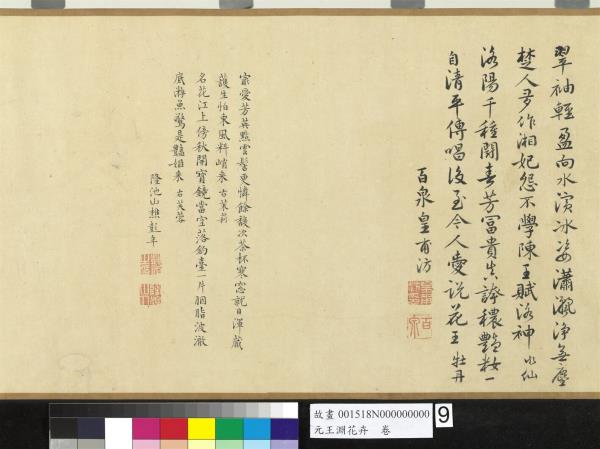 翠袖輕盈向水濱冰姿瀟灑淨無塵
楚人多作湘妃怨不學陳王賦洛神 水仙
洛陽千種鬪春芳冨貴真誇穠艷粧一
自清平傳唱後至今人愛說花王 牡丹
百泉皇甫汸
冞愛芳英點雲髻更憐餘馥次茶杯寒窓就日渾藏
護生怕東風料峭來 右茉莉
名花江上傍秋開寶鏡當空落鈞臺一片胭脂波澈
底游魚驚是豔姐來 右芙蓉
隆池山樵彭年
百
故畫 001518N000000000
元王淵花卉 卷
9